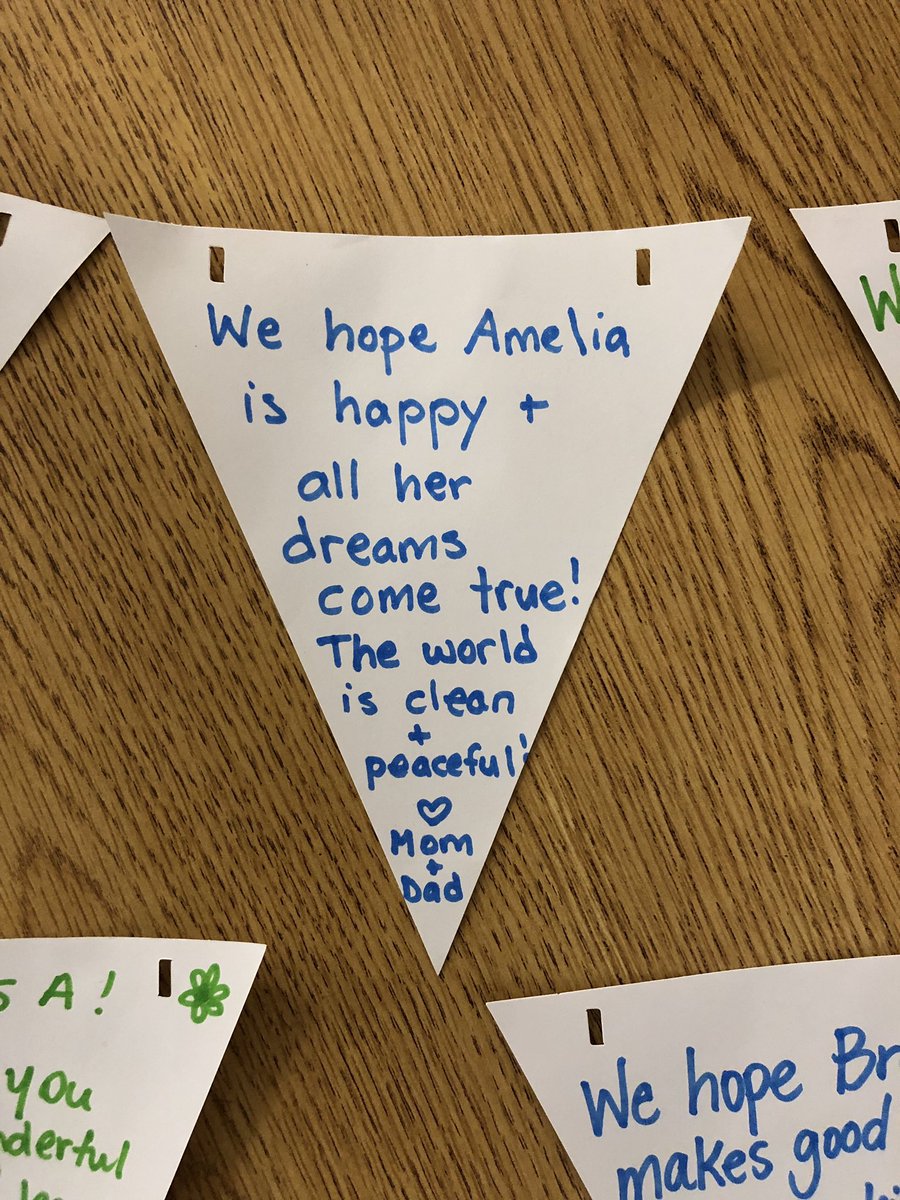 We hope Amelia
is happy +
all her
dreams
come true!
The world
is clean
+
peaceful!
♡
Mom
+
Dad
A!
you
We hope
makes good